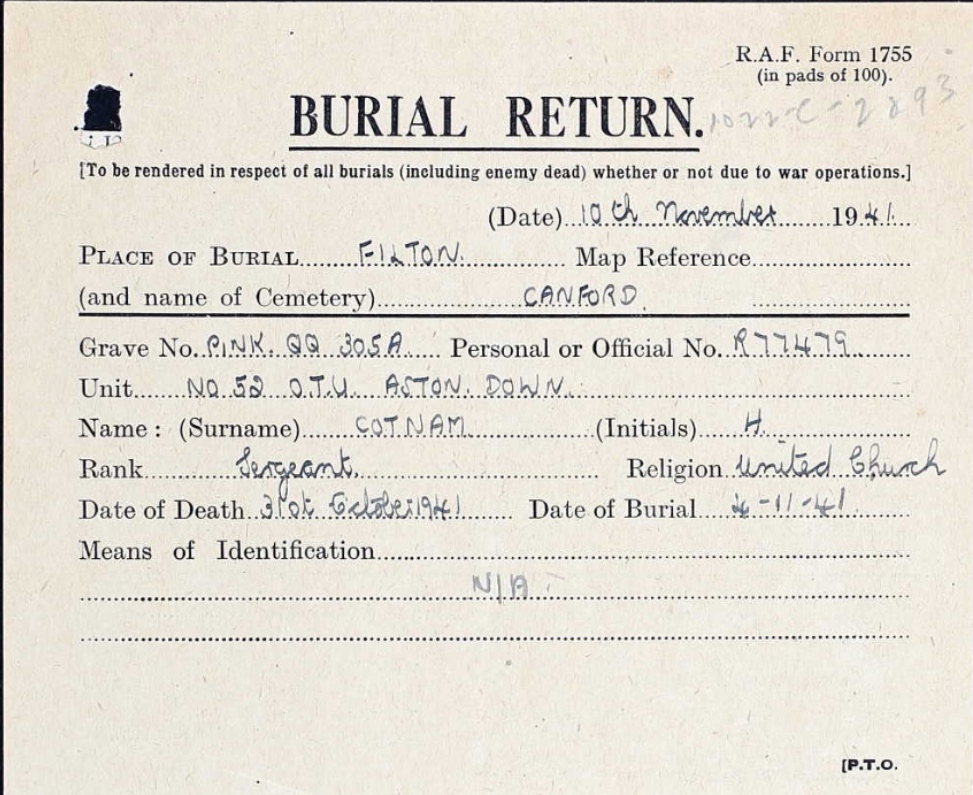 R.A.F. Form 1755
(in pads of 100).
BURIAL RETURN. 1022-C-2893
[To be rendered in respect of all burials (including enemy dead) whether or not due to war operations.]
(Date) 10th November 1941.
PLACE OF BURIAL FILTON. Map Reference
(and name of Cemetery) CANFORD.
Grave No. PINK. QQ 305A Personal or Official No. R77479
Unit NO 52 O.T.U. ASTON. DOWN.
Name: (Surname) COTNAM (Initials) H.
Rank Sergeant. Religion United Church
Date of Death 31st October 1941 Date of Burial 4-11-41
Means of Identification
N/A.
[P.T.O.